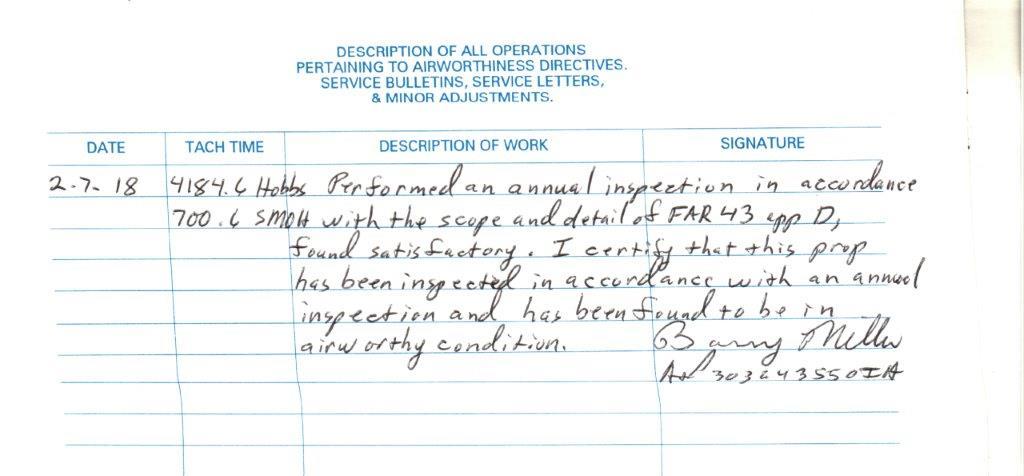 DESCRIPTION OF ALL OPERATIONS
PERTAINING TO AIRWORTHINESS DIRECTIVES.
SERVICE BULLETINS, SERVICE LETTERS,
& MINOR ADJUSTMENTS.
DATE TACH TIME DESCRIPTION OF WORK SIGNATURE
2-7-18 4184.6 Hobbs Performed an annual inspection in accordance
700.6 SMOH with the scope and detail of FAR 43 app D,
found satisfactory. I certify that this prop
has been inspected in accordance with an annual
inspection and has been found to be in
airworthy condition. Barry Miller
AP 303243550IA